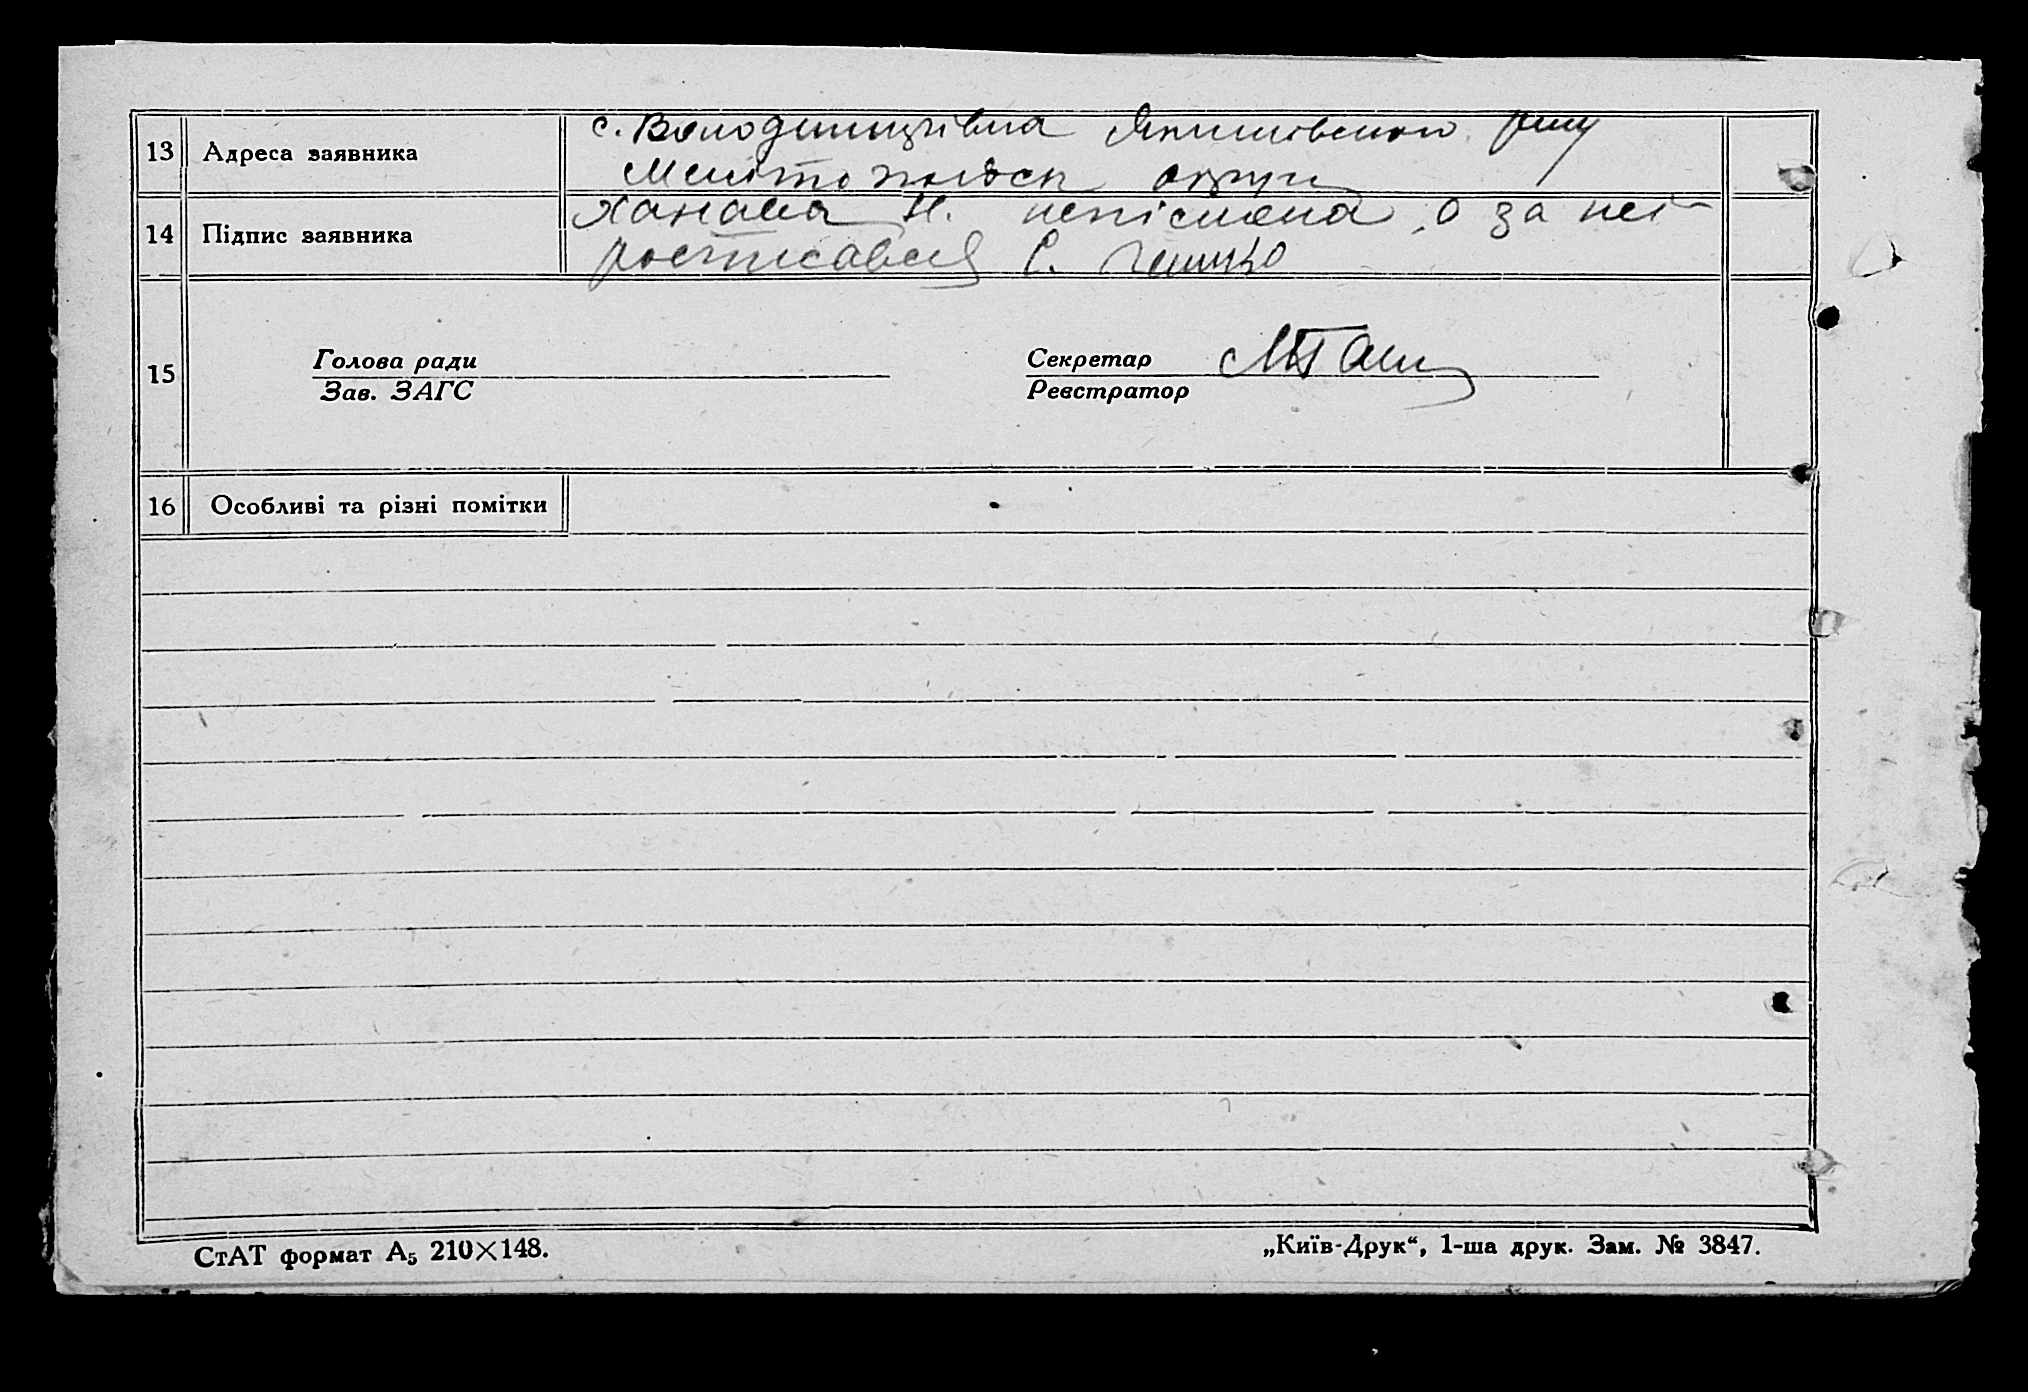 13 Адреса заявника
с. Володимирівка Якимівського р-ну
Мелітопольск округи
14 Підпис заявника
Ханаєва Н. неписьмена, а за неї
росписався С.
15 Голова ради
Зав. ЗАГС
Секретар
Реєстратор
16 Особливі та різні помітки
СтАТ формат А₅ 210×148.
„Київ-Друк“, 1-ша друк. Зам. № 3847.